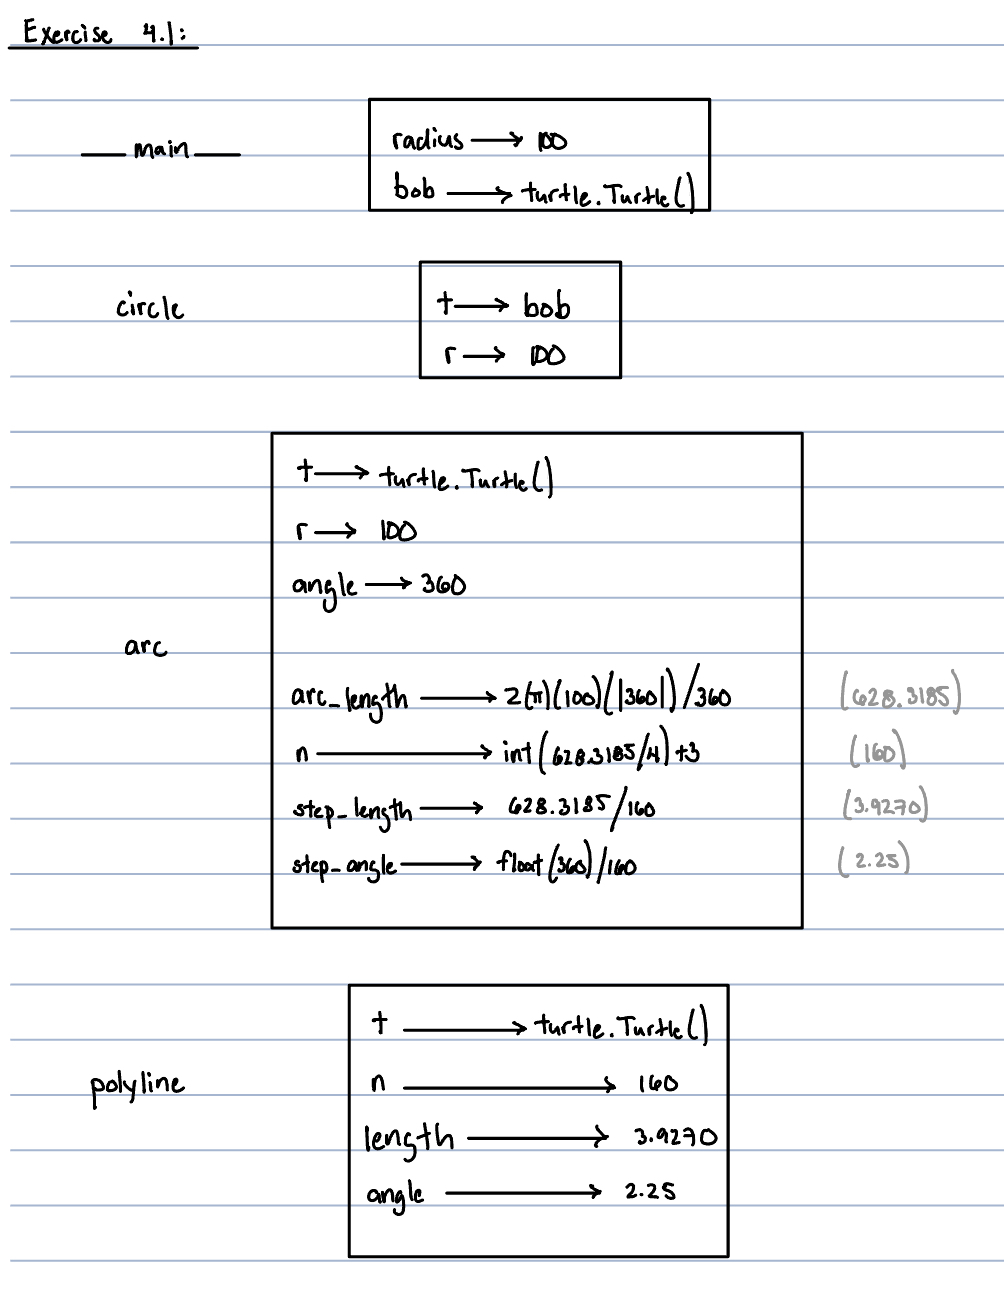 Exercise 4.1:
__main__
radius → 100
bob → turtle.Turtle()
circle
t → bob
r → 100
arc
t → turtle.Turtle()
r → 100
angle → 360
arc_length → 2(π)(100)(|360|)/360 (628.3185)
n → int(628.3185/4)+3 (160)
step_length → 628.3185/160 (3.9270)
step_angle → float(360)/160 (2.25)
polyline
t → turtle.Turtle()
n → 160
length → 3.9270
angle → 2.25